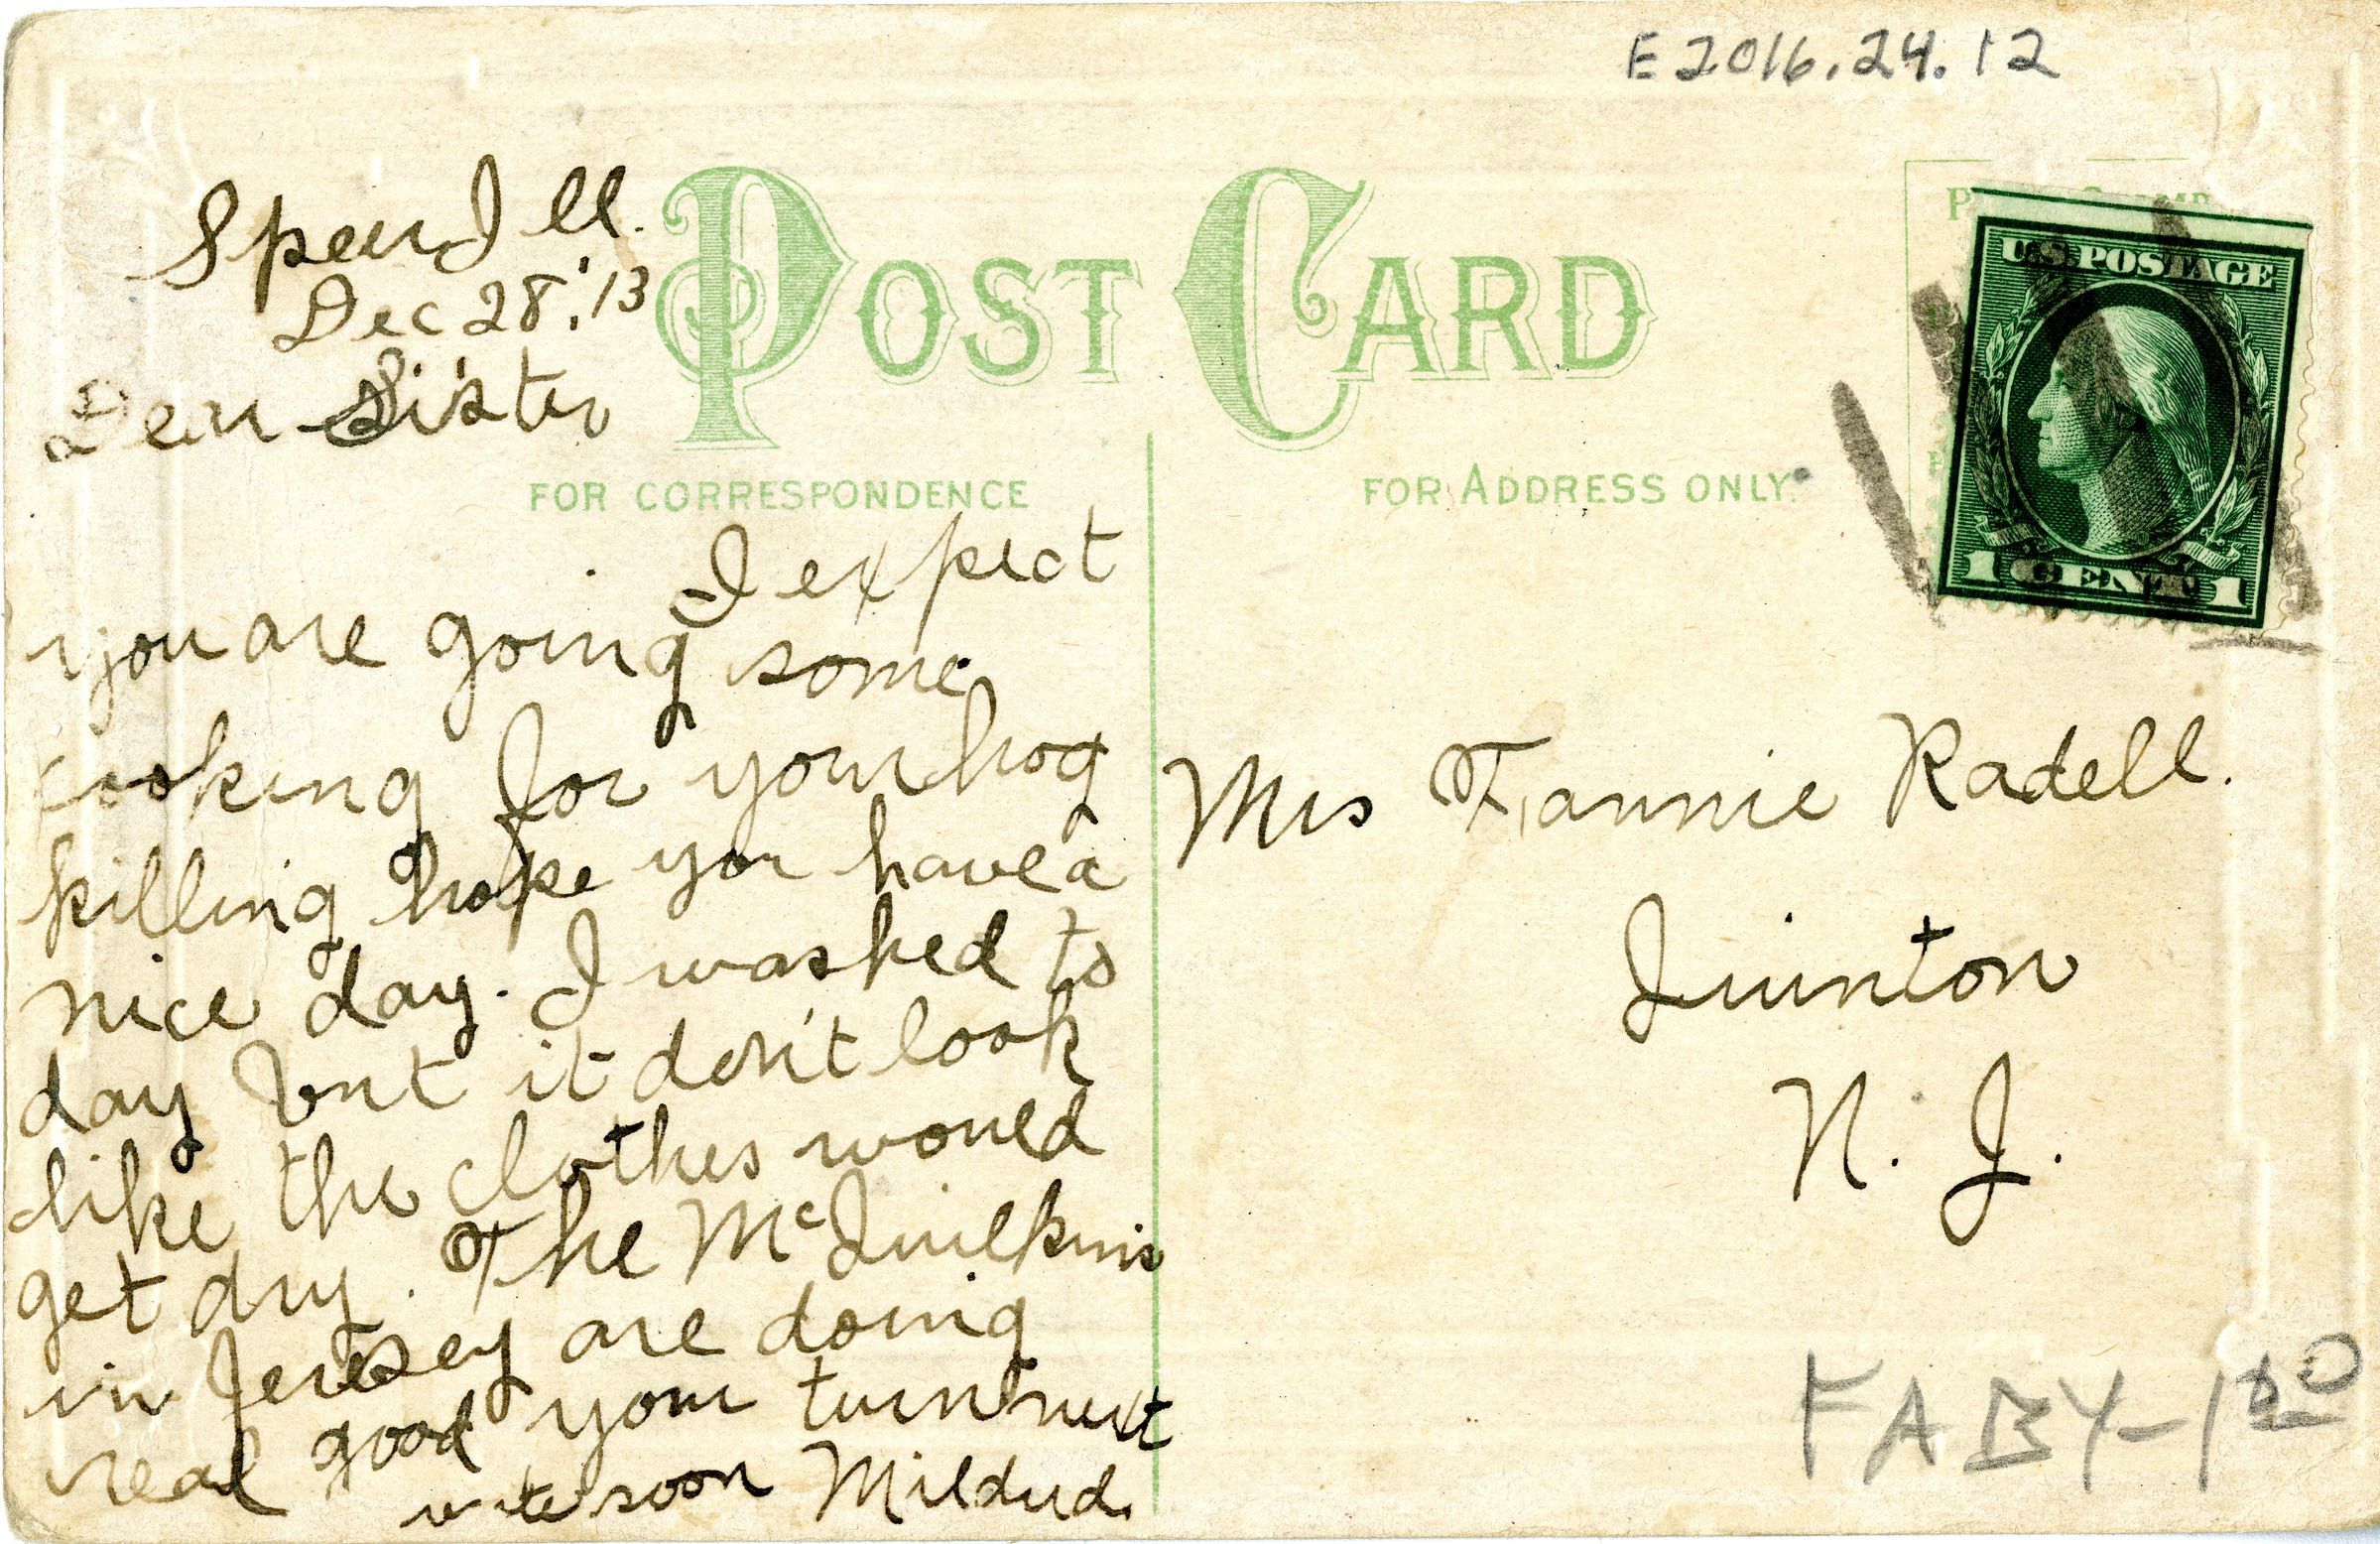 E2016.24.12
Speer Ill.
Dec 28, '13
Dear Sister
POST CARD
FOR CORRESPONDENCE
FOR ADDRESS ONLY.
U.S. POSTAGE
1 CENT 1
I expect
you are going some
cooking for your hog
killing hope you have a
nice day. I washed to
day but it don't look
like the clothes would
get dry. The McQuilkins
in Jersey are doing
real good your turn next
write soon Mildred.
Mrs Fannie Radell.
Quinton
N. J.
FABY-150